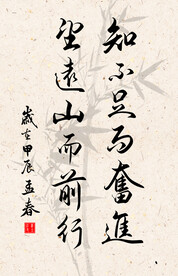 知不足而奮進
望遠山而前行
歲在甲辰孟春